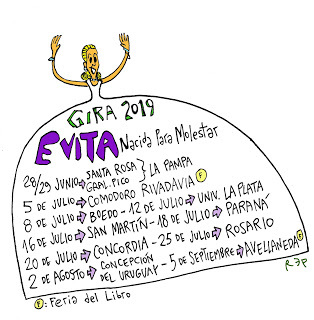 GIRA 2019
EVITA Nacida Para Molestar
28/29 JUNIO → SANTA ROSA GRAL. PICO } LA PAMPA
5 DE JULIO → COMODORO RIVADAVIA Ⓕ
8 DE JULIO → BOEDO - 12 DE JULIO → UNIV. LA PLATA
16 DE JULIO → SAN MARTÍN - 18 DE JULIO → PARANÁ
20 DE JULIO → CONCORDIA - 25 DE JULIO → ROSARIO
2 DE AGOSTO → CONCEPCIÓN DEL URUGUAY - 5 DE SEPTIEMBRE → AVELLANEDA Ⓕ
REP
Ⓕ: Feria del Libro